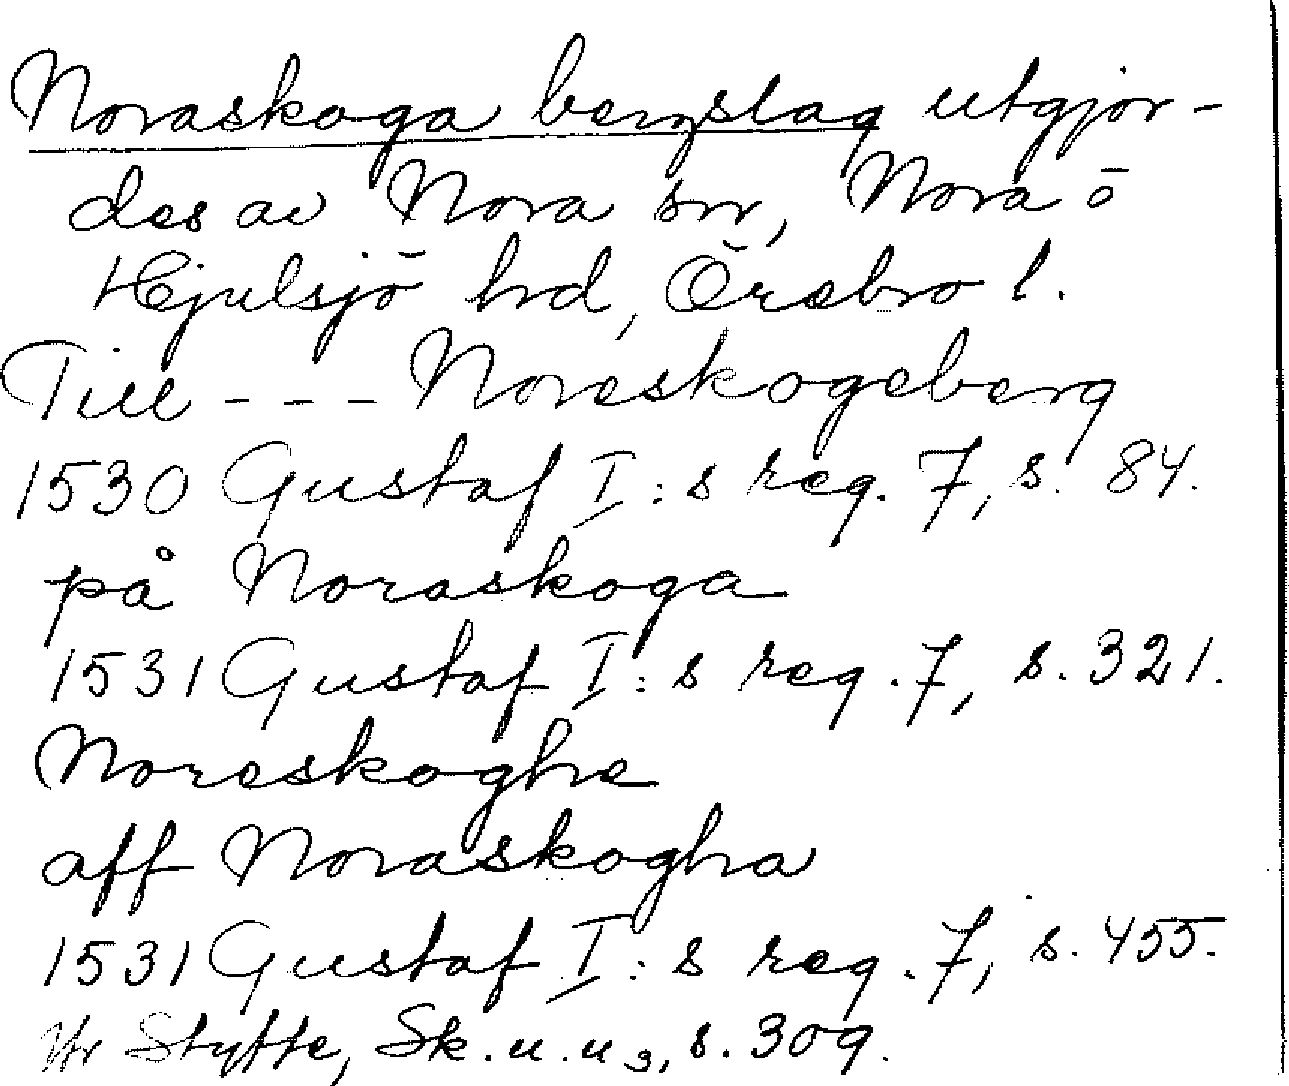 Noraskoga bergslag utgjor-
des av Nora sn, Nora o
Hjulsjö hd, Örebro l.
Till --- Noreskogeberg
1530 Gustaf I:s reg. 7, s. 84.
på Noraskoga
1531 Gustaf I:s reg. 7, s. 321.
Noreskoghe
aff Noraskogha
1531 Gustaf I:s reg. 7, s. 455.
Jfr Styffe, Sk. u. u₃, s. 309.